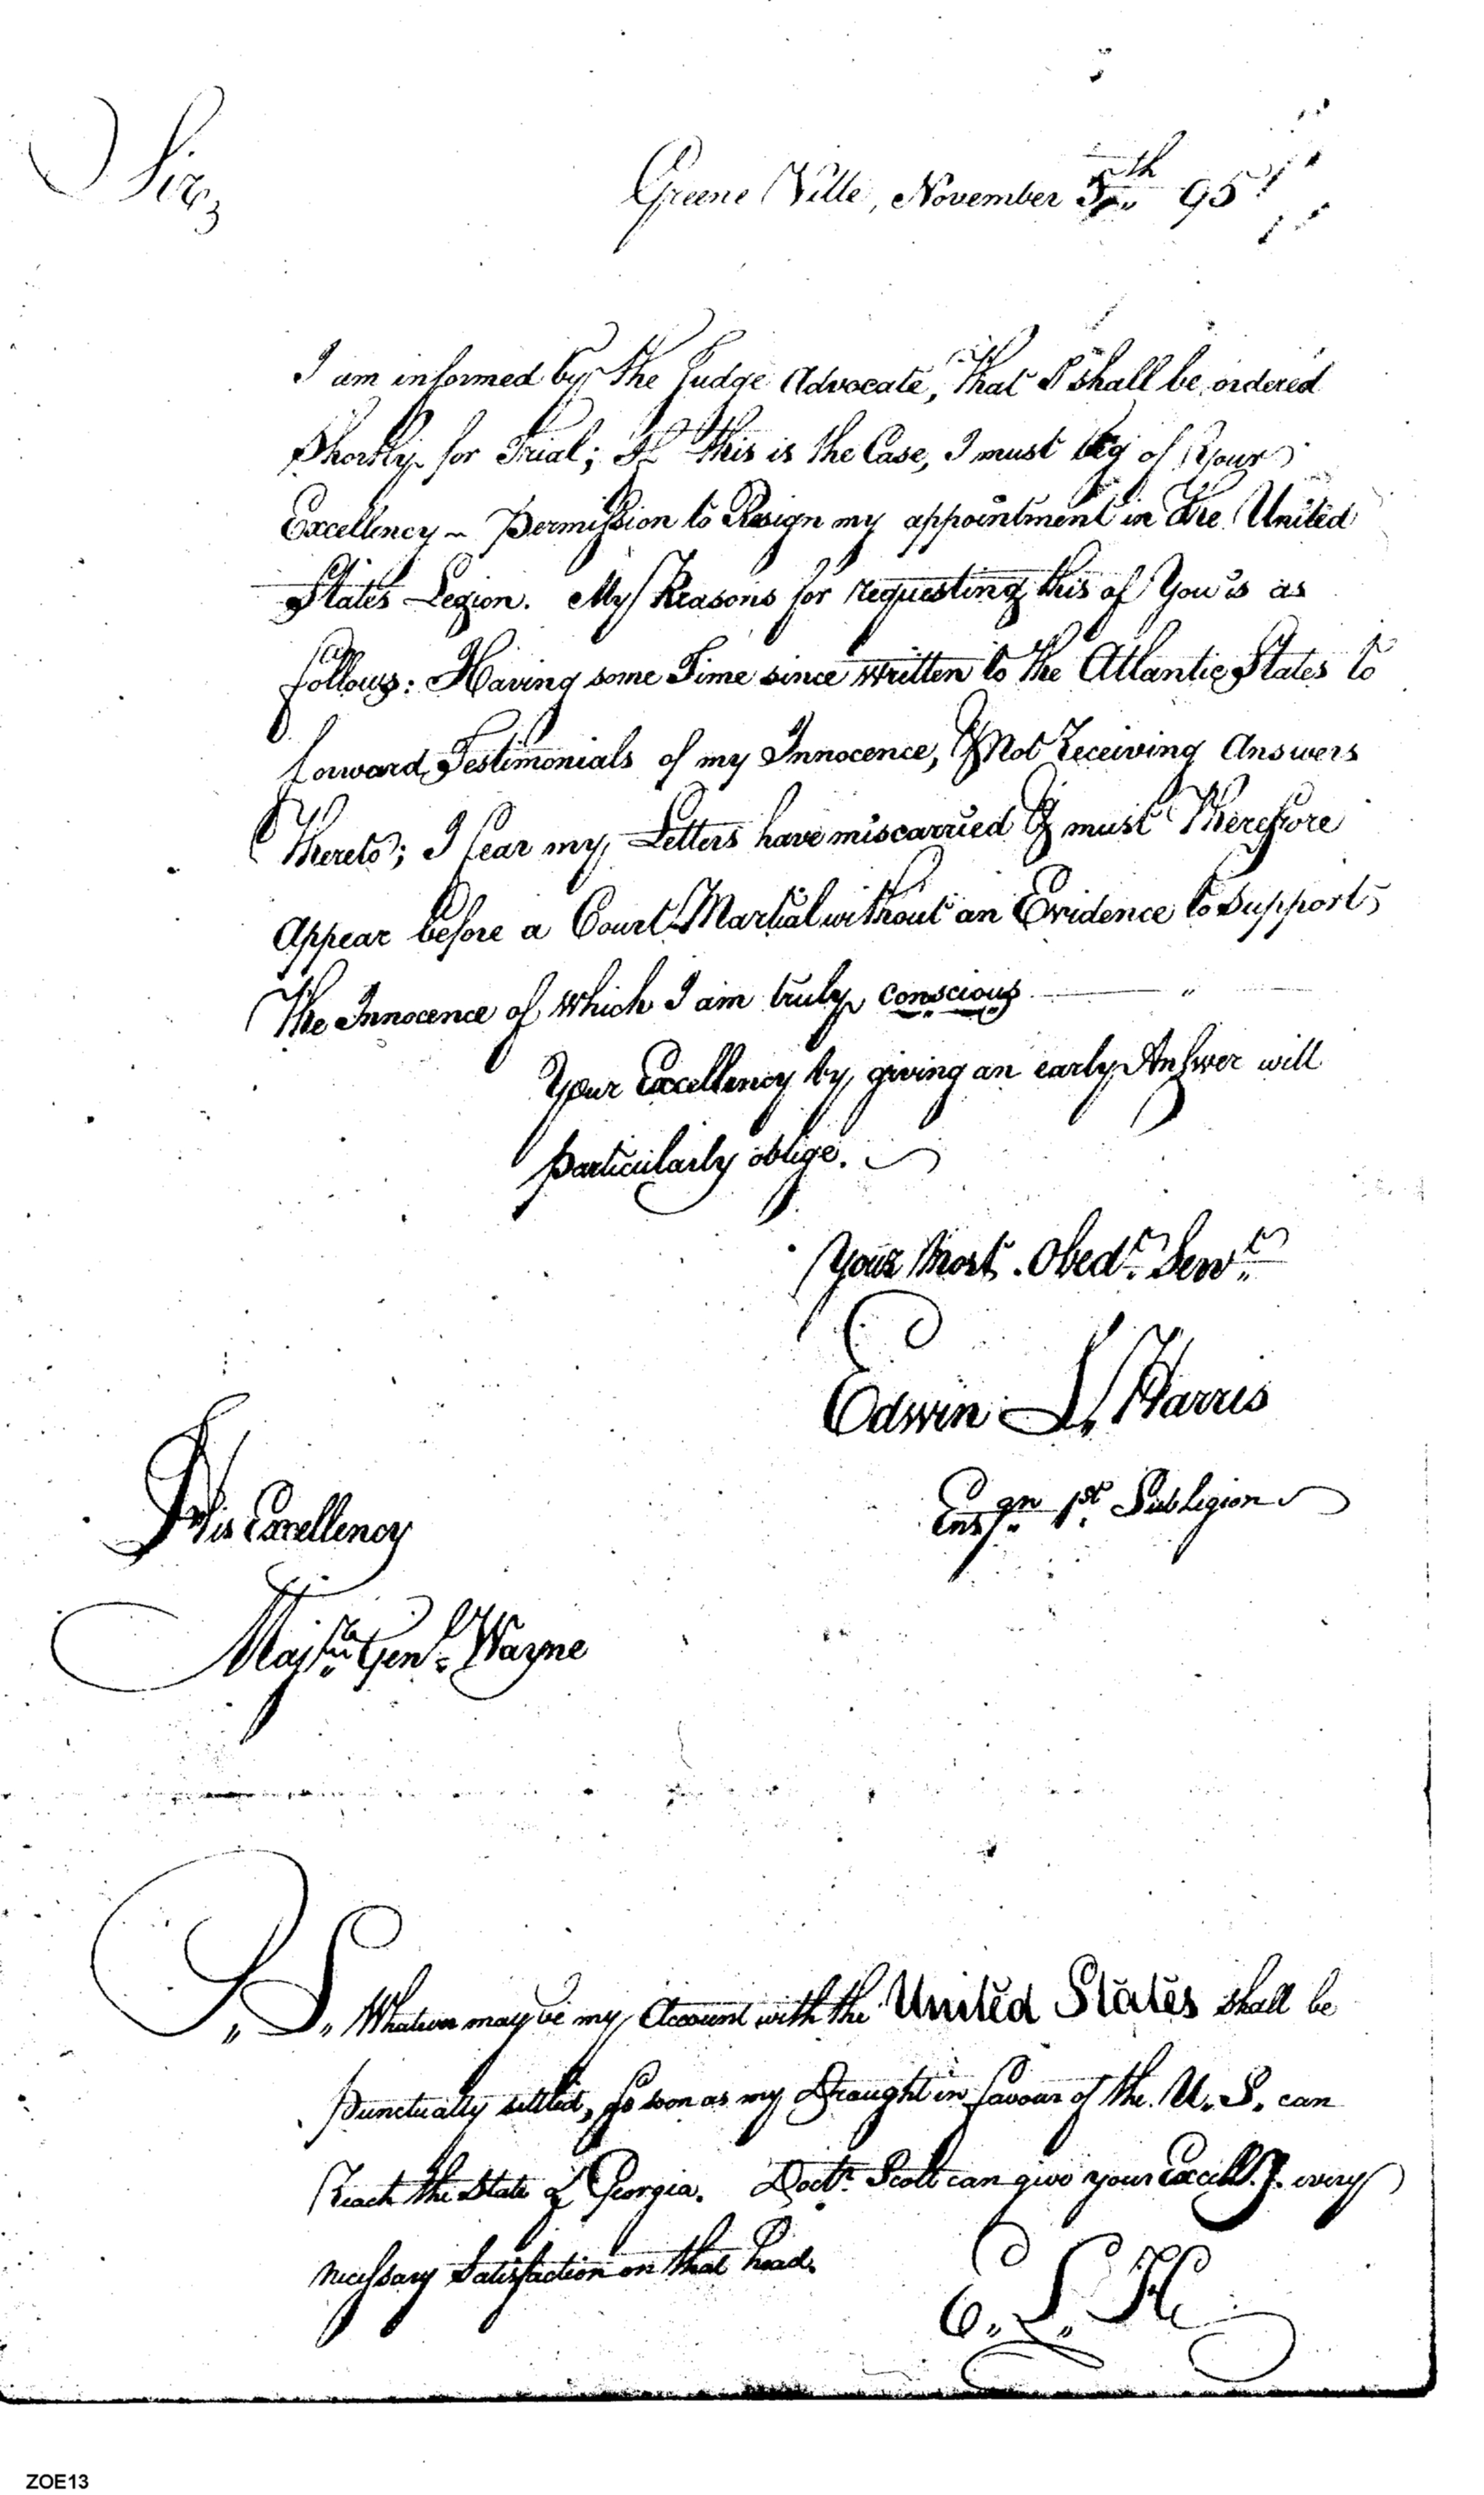 Sir,
Greene Ville, November 5th 95
I am informed by the Judge Advocate, that I shall be ordered
Shortly for Trial; If this is the Case, I must beg of Your
Excellency ~ Permission to Resign my appointment in the United
States Legion. My Reasons for requesting this of You is as
follows: Having some Time since written to the Atlantic States to
forward Testimonials of my Innocence, & Not Receiving Answers
Thereto; I fear my Letters have miscarried & must Therefore
Appear before a Court Martial without an Evidence to Support
The Innocence of which I am truly conscious
Your Excellency by giving an early Answer will
particularly oblige.
Your Most Obedt. Servt.
Edwin L. Harris
Ensgn 1st Sub Legion
His Excellency
Majr Genl. Wayne
P. S. Whatever may be my Account with the United States shall be
punctually settled, so soon as my Draught in favour of the U. S. can
Reach the State of Georgia. Doctr. Scott can give your Excelly. every
necessary Satisfaction on that head.
E. L. H
ZOE13